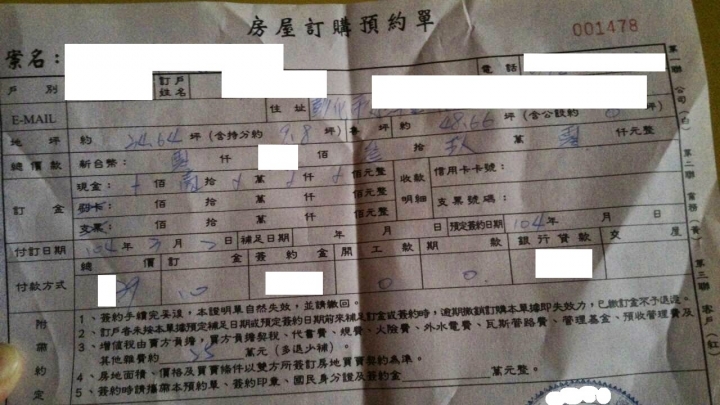 房屋訂購預約單
001478
案名：
戶別 訂戶姓名 電話
E-MAIL 住址
地坪 約 24.64 坪（含持分約 9.8 坪） 約 48.66 坪（含公設約 0 坪）
總價款 新台幣： 仟 佰 拾 萬 仟元整
訂金 現金： 佰 拾 萬 仟 佰元整 收款明細 信用卡卡號：
刷卡： 佰 拾 萬 仟 佰元整
支票： 佰 拾 萬 仟 佰元整 支票號碼：
付訂日期 104年 月 日 補足日期 年 月 日 預定簽約日期 104年 月 日
付款方式 總價 訂金 簽約金 開工款 期款 銀行貸款 交屋
10 0 0
附帶約定
1、簽約手續完妥後，本證明單自然失效，並請繳回。
2、訂戶若未按本單據預定補足日期或預定簽約日期前來補足訂金或簽約時，逾期撤銷訂購本單據即失效力，已繳訂金不予退還。
3、增值稅由賣方負擔，買方負擔契稅、代書費、規費、火險費、外水電費、瓦斯管路費、管理基金、預收管理費及
其他雜費約 萬元（多退少補）。
4、房地面積、價格及買賣條件以雙方所簽訂房地買賣契約為準。
5、簽約時請攜帶本預約單、簽約印章、國民身分證及簽約金 萬元整。
第一聯 公司（白）
第二聯
第三聯 客戶（紅）